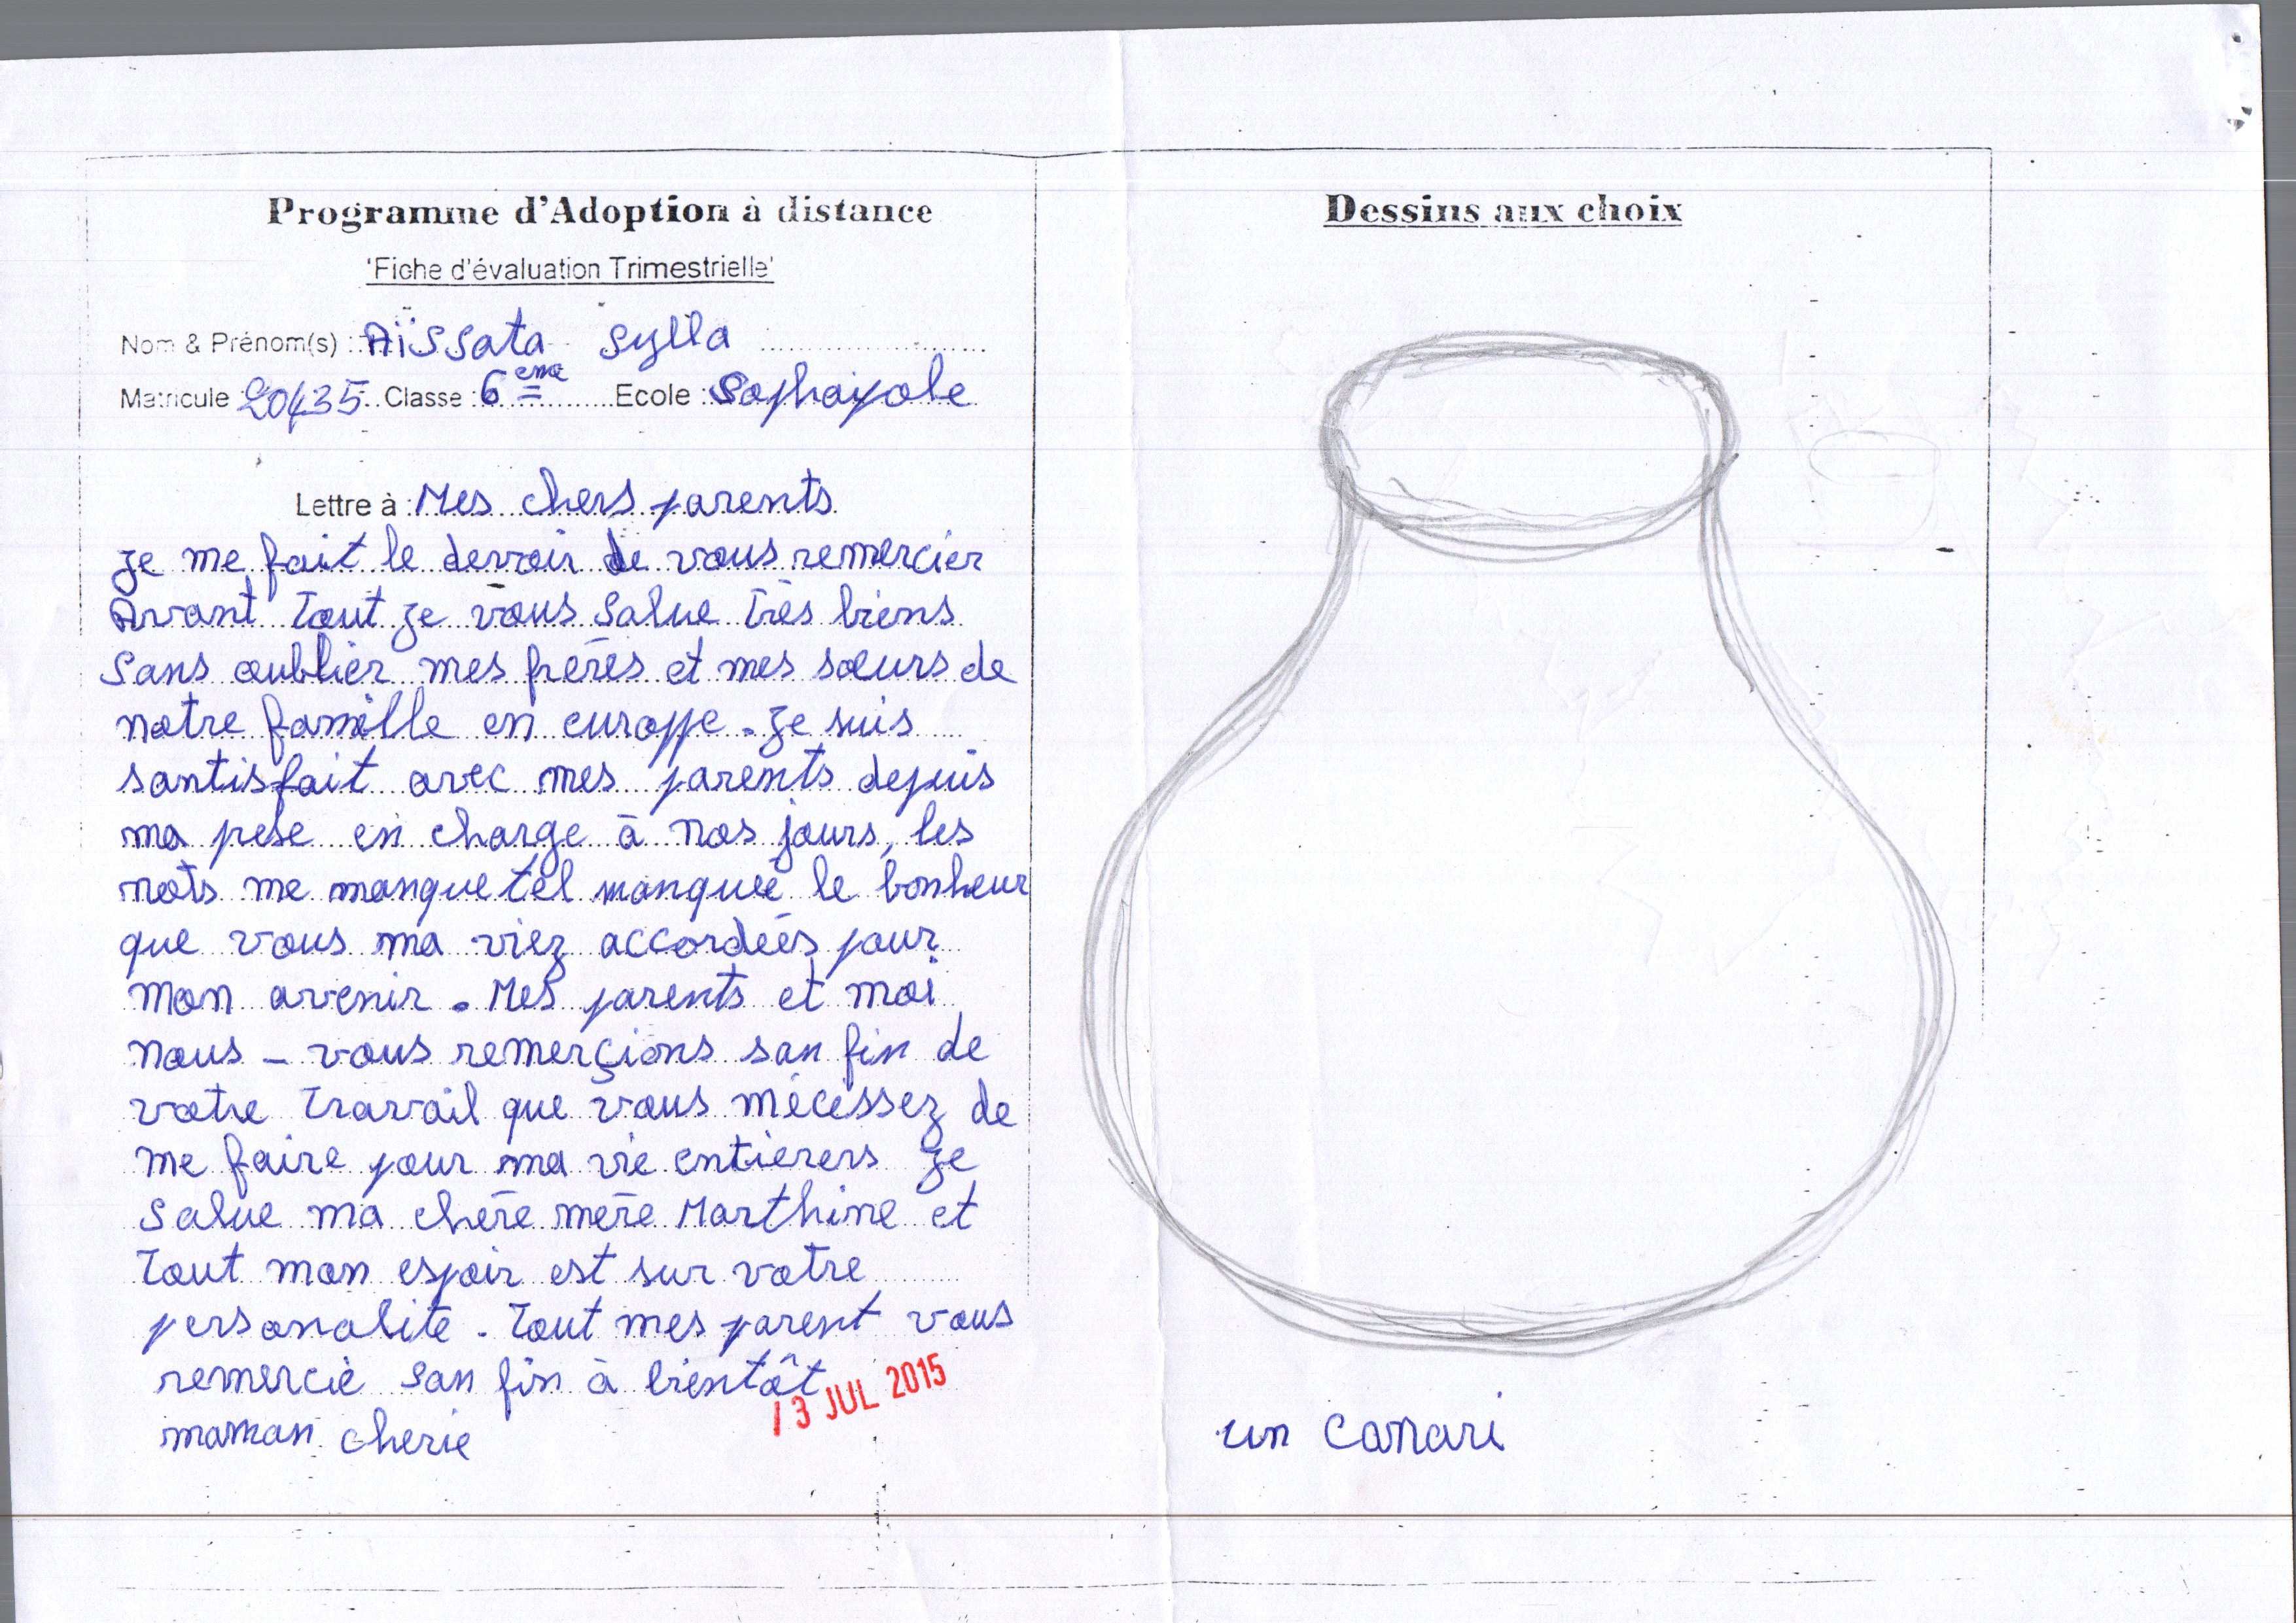 Programme d'Adoption à distance
'Fiche d'évaluation Trimestrielle'
Nom & Prénom(s) : Aïssata Sylla
Matricule : 20435 Classe : 6ème Ecole : Sophayole
Lettre à : Mes chers parents
Je me fait le devoir de vous remercier
Avant Tout Je vous Salue Très biens
Sans oublier mes frères et mes sœurs de
notre famille en europpe. Je suis
santisfait avec mes parents depuis
ma pese en charge à nos jours, les
mots me manque tel manquée le bonheur
que vous ma viez accordées pour
mon avenir. Mes parents et moi
nous - vous remerçions san fin de
votre Travail que vous mécéssez de
me faire pour ma vie entièrers Je
Salue ma chère mère Marthine et
Tout mon espoir est sur votre
personalite. Tout mes parent vous
remercie San fin à bientôt
maman cherie
13 JUL 2015
Dessins aux choix
un canari